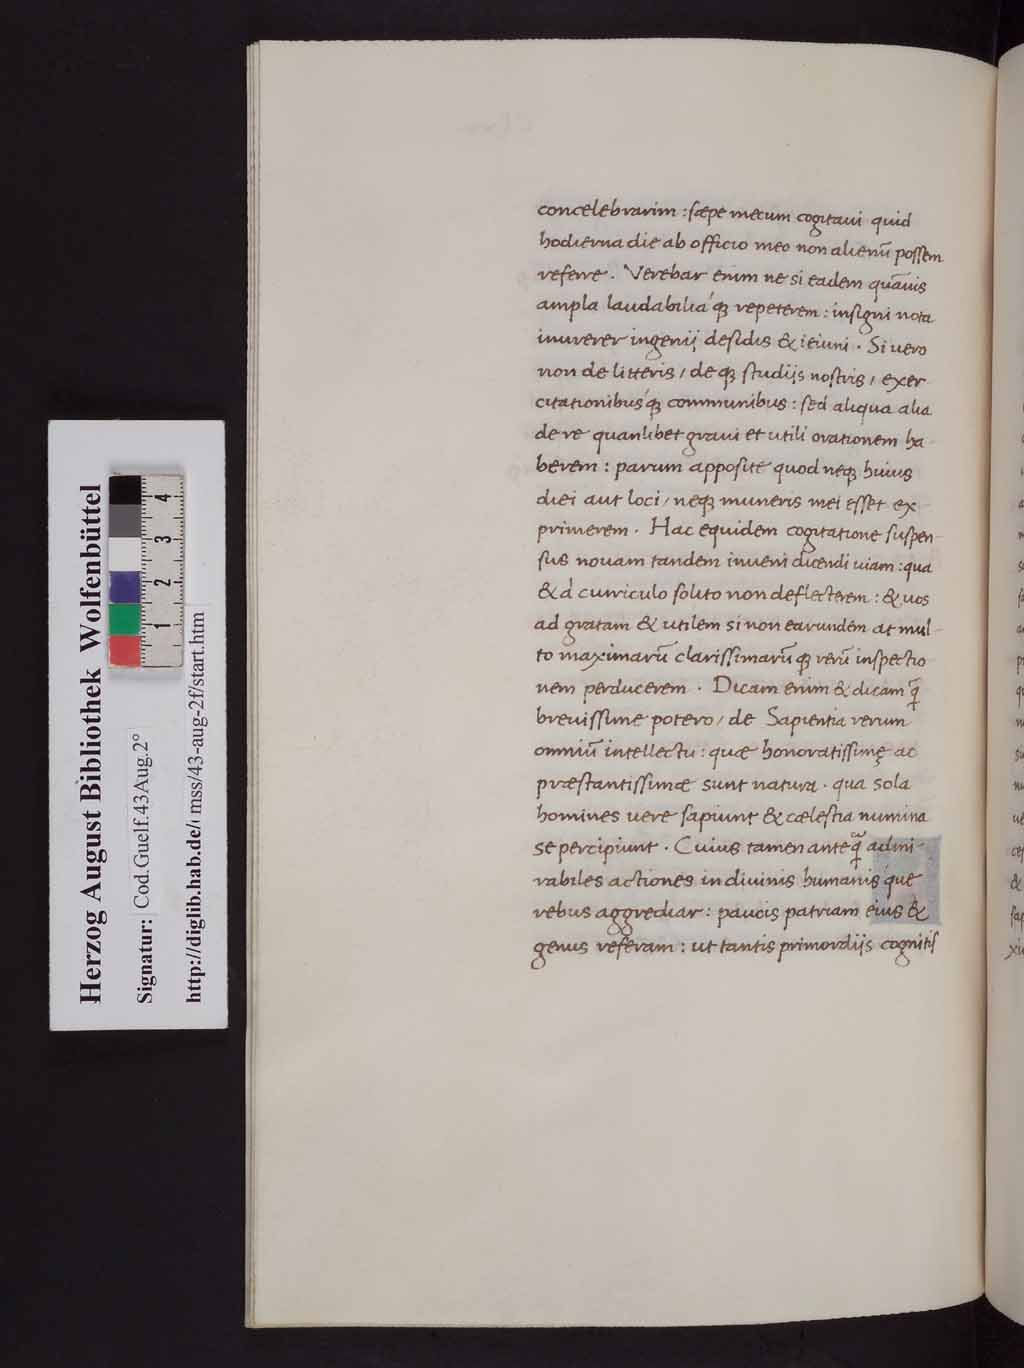 concelebrarim : sæpe mecum cogitaui quid
hodierna die ab officio meo non alienū possem
referre . Verebar enim ne si eadem quāuis
ampla laudabiliáqꝫ repeterem : insigni nota
inurerer ingenij desidis & ieiuni . Si uero
non de litteris / deqꝫ studijs nostris / exer
citationibusqꝫ communibus : sed aliqua alia
de re quanlibet graui et utili orationem ha-
berem : parum apposite quod neqꝫ huius
diei aut loci / neqꝫ muneris mei esset ex-
primerem . Hac equidem cogitatione suspen-
sus nouam tandem inueni dicendi uiam : qua
& á curriculo solito non deflecterem : & uos
ad gratam & utilem si non earundem at mul-
to maximarū clarissimarūqꝫ rerū inspectio
nem perducerem . Dicam enim & dicam q̄
breuissime potero / de Sapientia rerum
omniū intellectu : quæ honoratissimę ac
præstantissimæ sunt natura . qua sola
homines uere sapiunt & cælestia numina
se percipiunt . Cuius tamen anteq̄ admi-
rabiles actiones in diuinis humanisque
rebus aggrediar : paucis patriam eius &
genus referam : ut tantis primordijs cognitis
Herzog August Bibliothek Wolfenbüttel
Signatur: Cod.Guelf.43Aug.2°
http://diglib.hab.de/ mss/43-aug-2f/start.htm
1 2 3 4